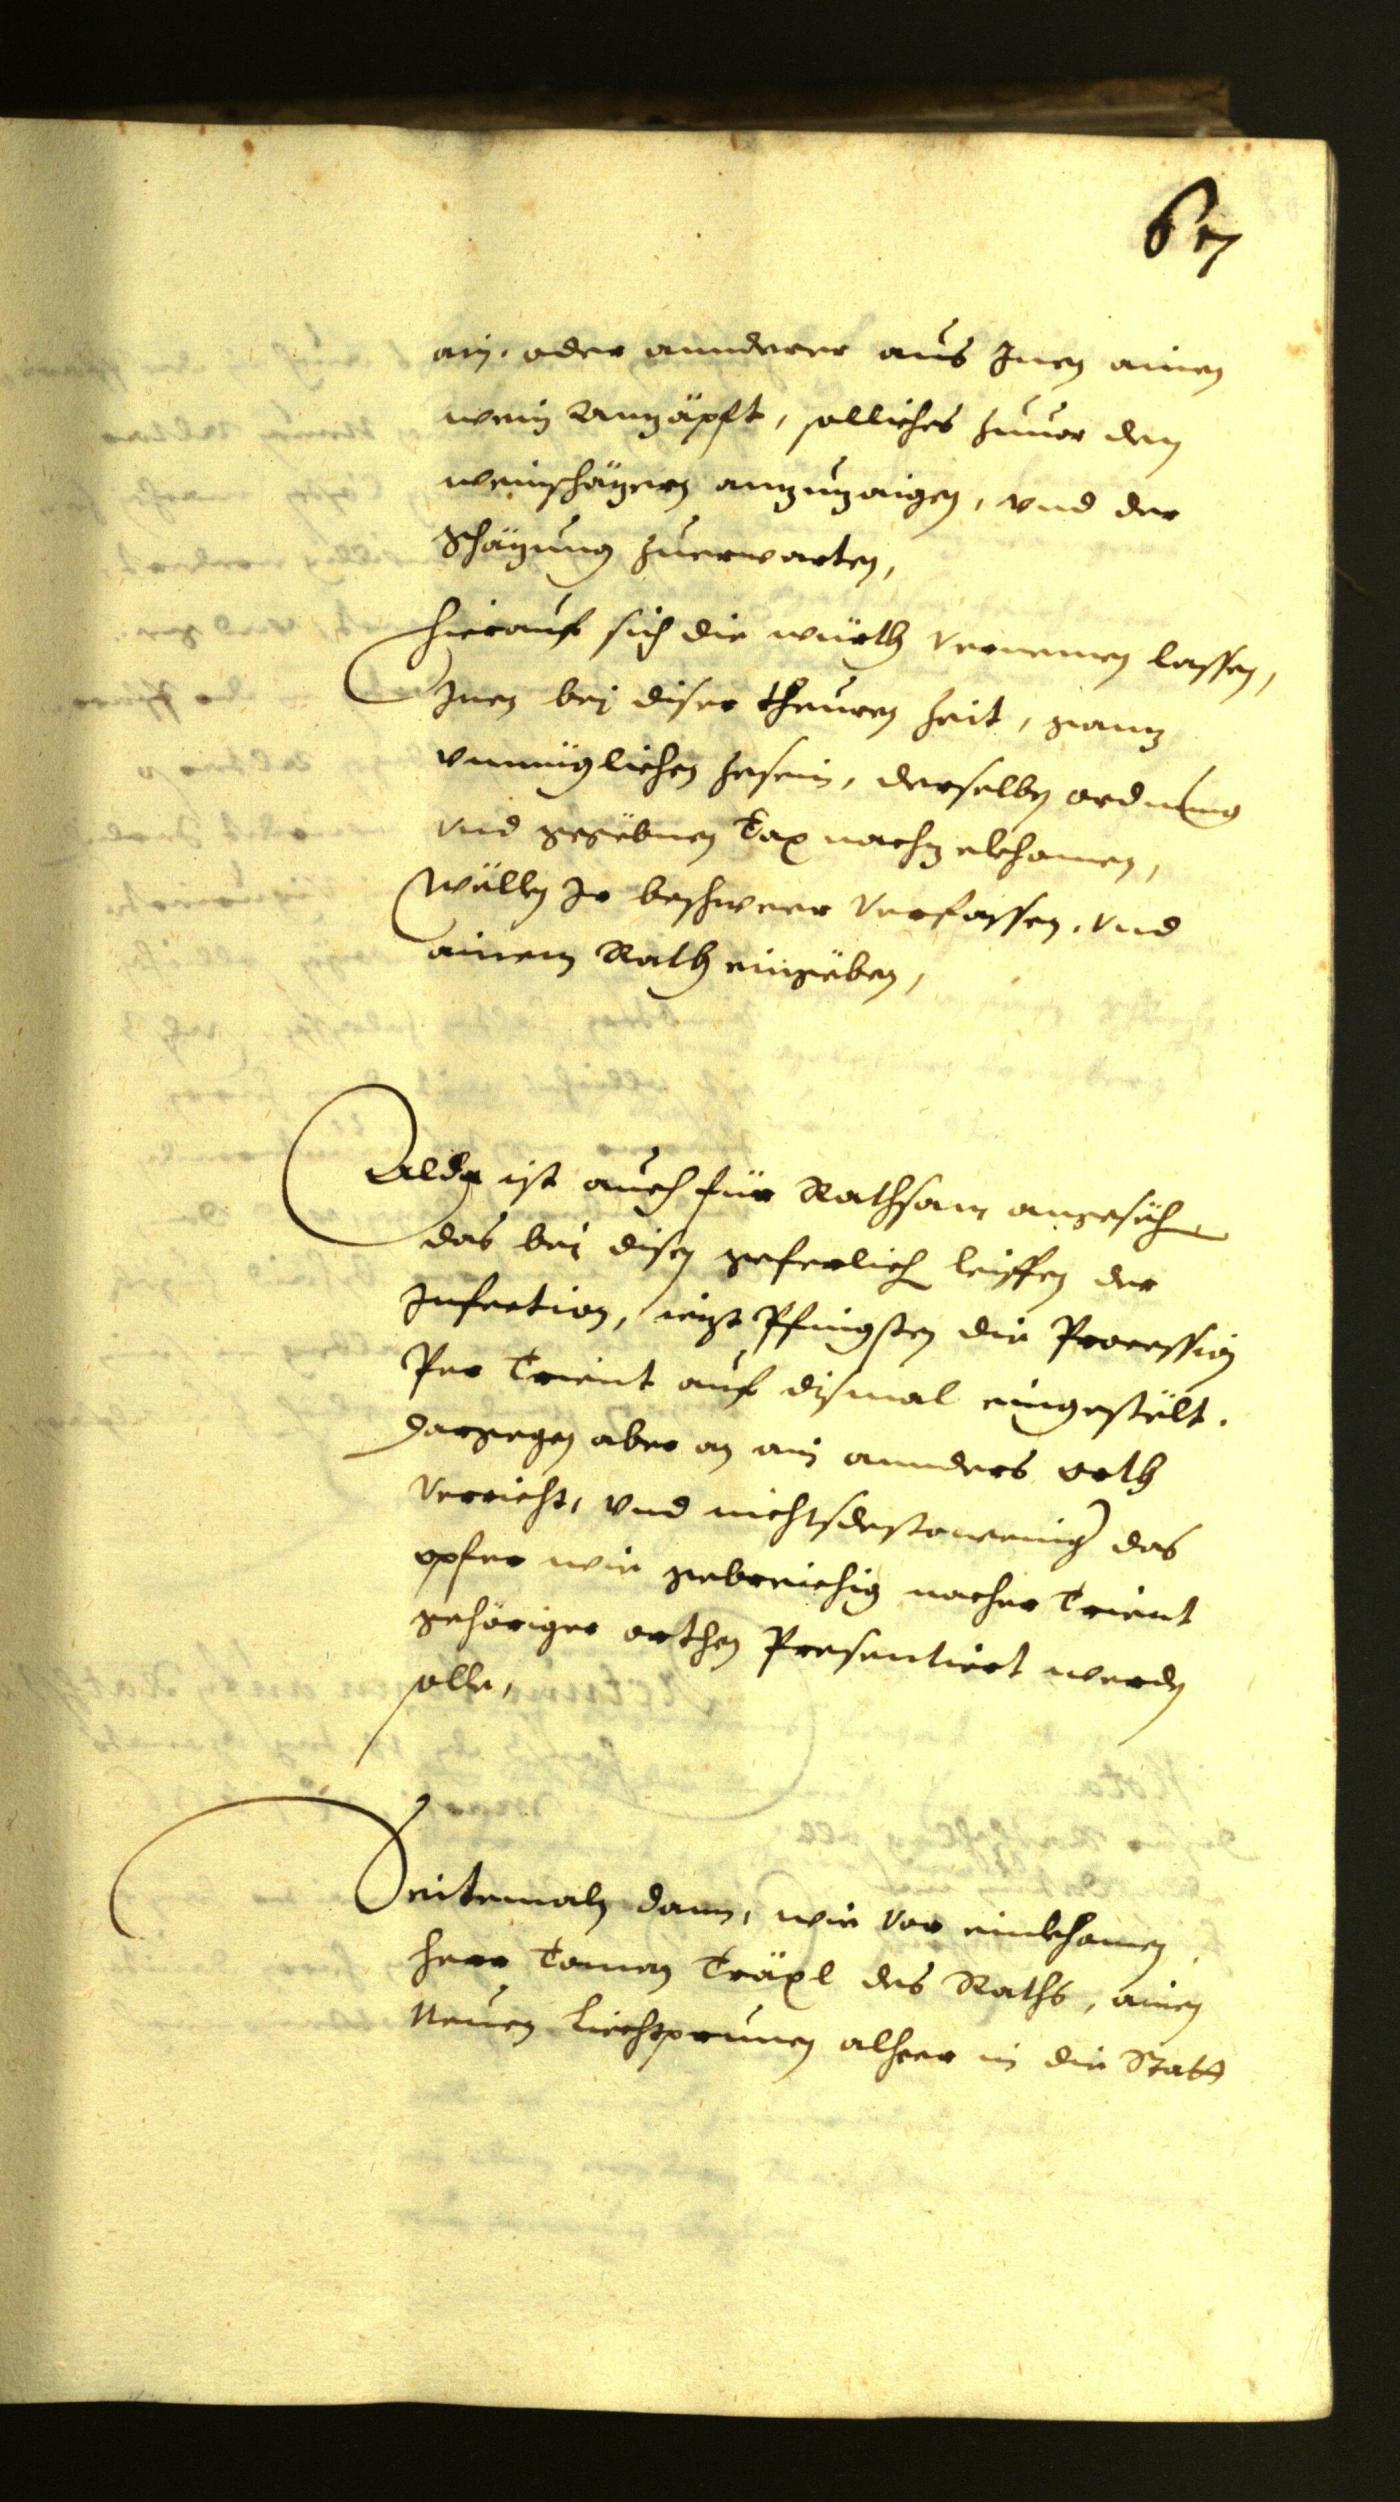 67
ain. oder annderer aus Inen ainen
wein Anzäpft, solliches zuuor den
weinschäzern anzuzaigen, vnd der
schäzung zuerwarten,
hierauf sich die würth vernemen lassen,
Inen bej diser theuren zeit, ganz
vnmüglichen zesein, derselben ordnung
vnd gegebnen Tax nachzekhomen,
wöllen Ir beschweer verfassen, vnd
ainem Rath eingeben,
ist auch für Rathsam angesech
das bej disen geferlich leiffen der
Infection, iezt Pfingsten die Procession
Per Trient auf dismal eingestölt.
dargegen aber an ain annders orth
verricht, vnd nichtsdestoweniger das
opfer wie gebreichig nacher Trient
gehöriger orthen Presentiert werden
solle,
Seitemaln dann, wie vor einkhomen
herr Toman Träxl des Raths, ainen
Neuen Liechtprunen alheer in die Statt